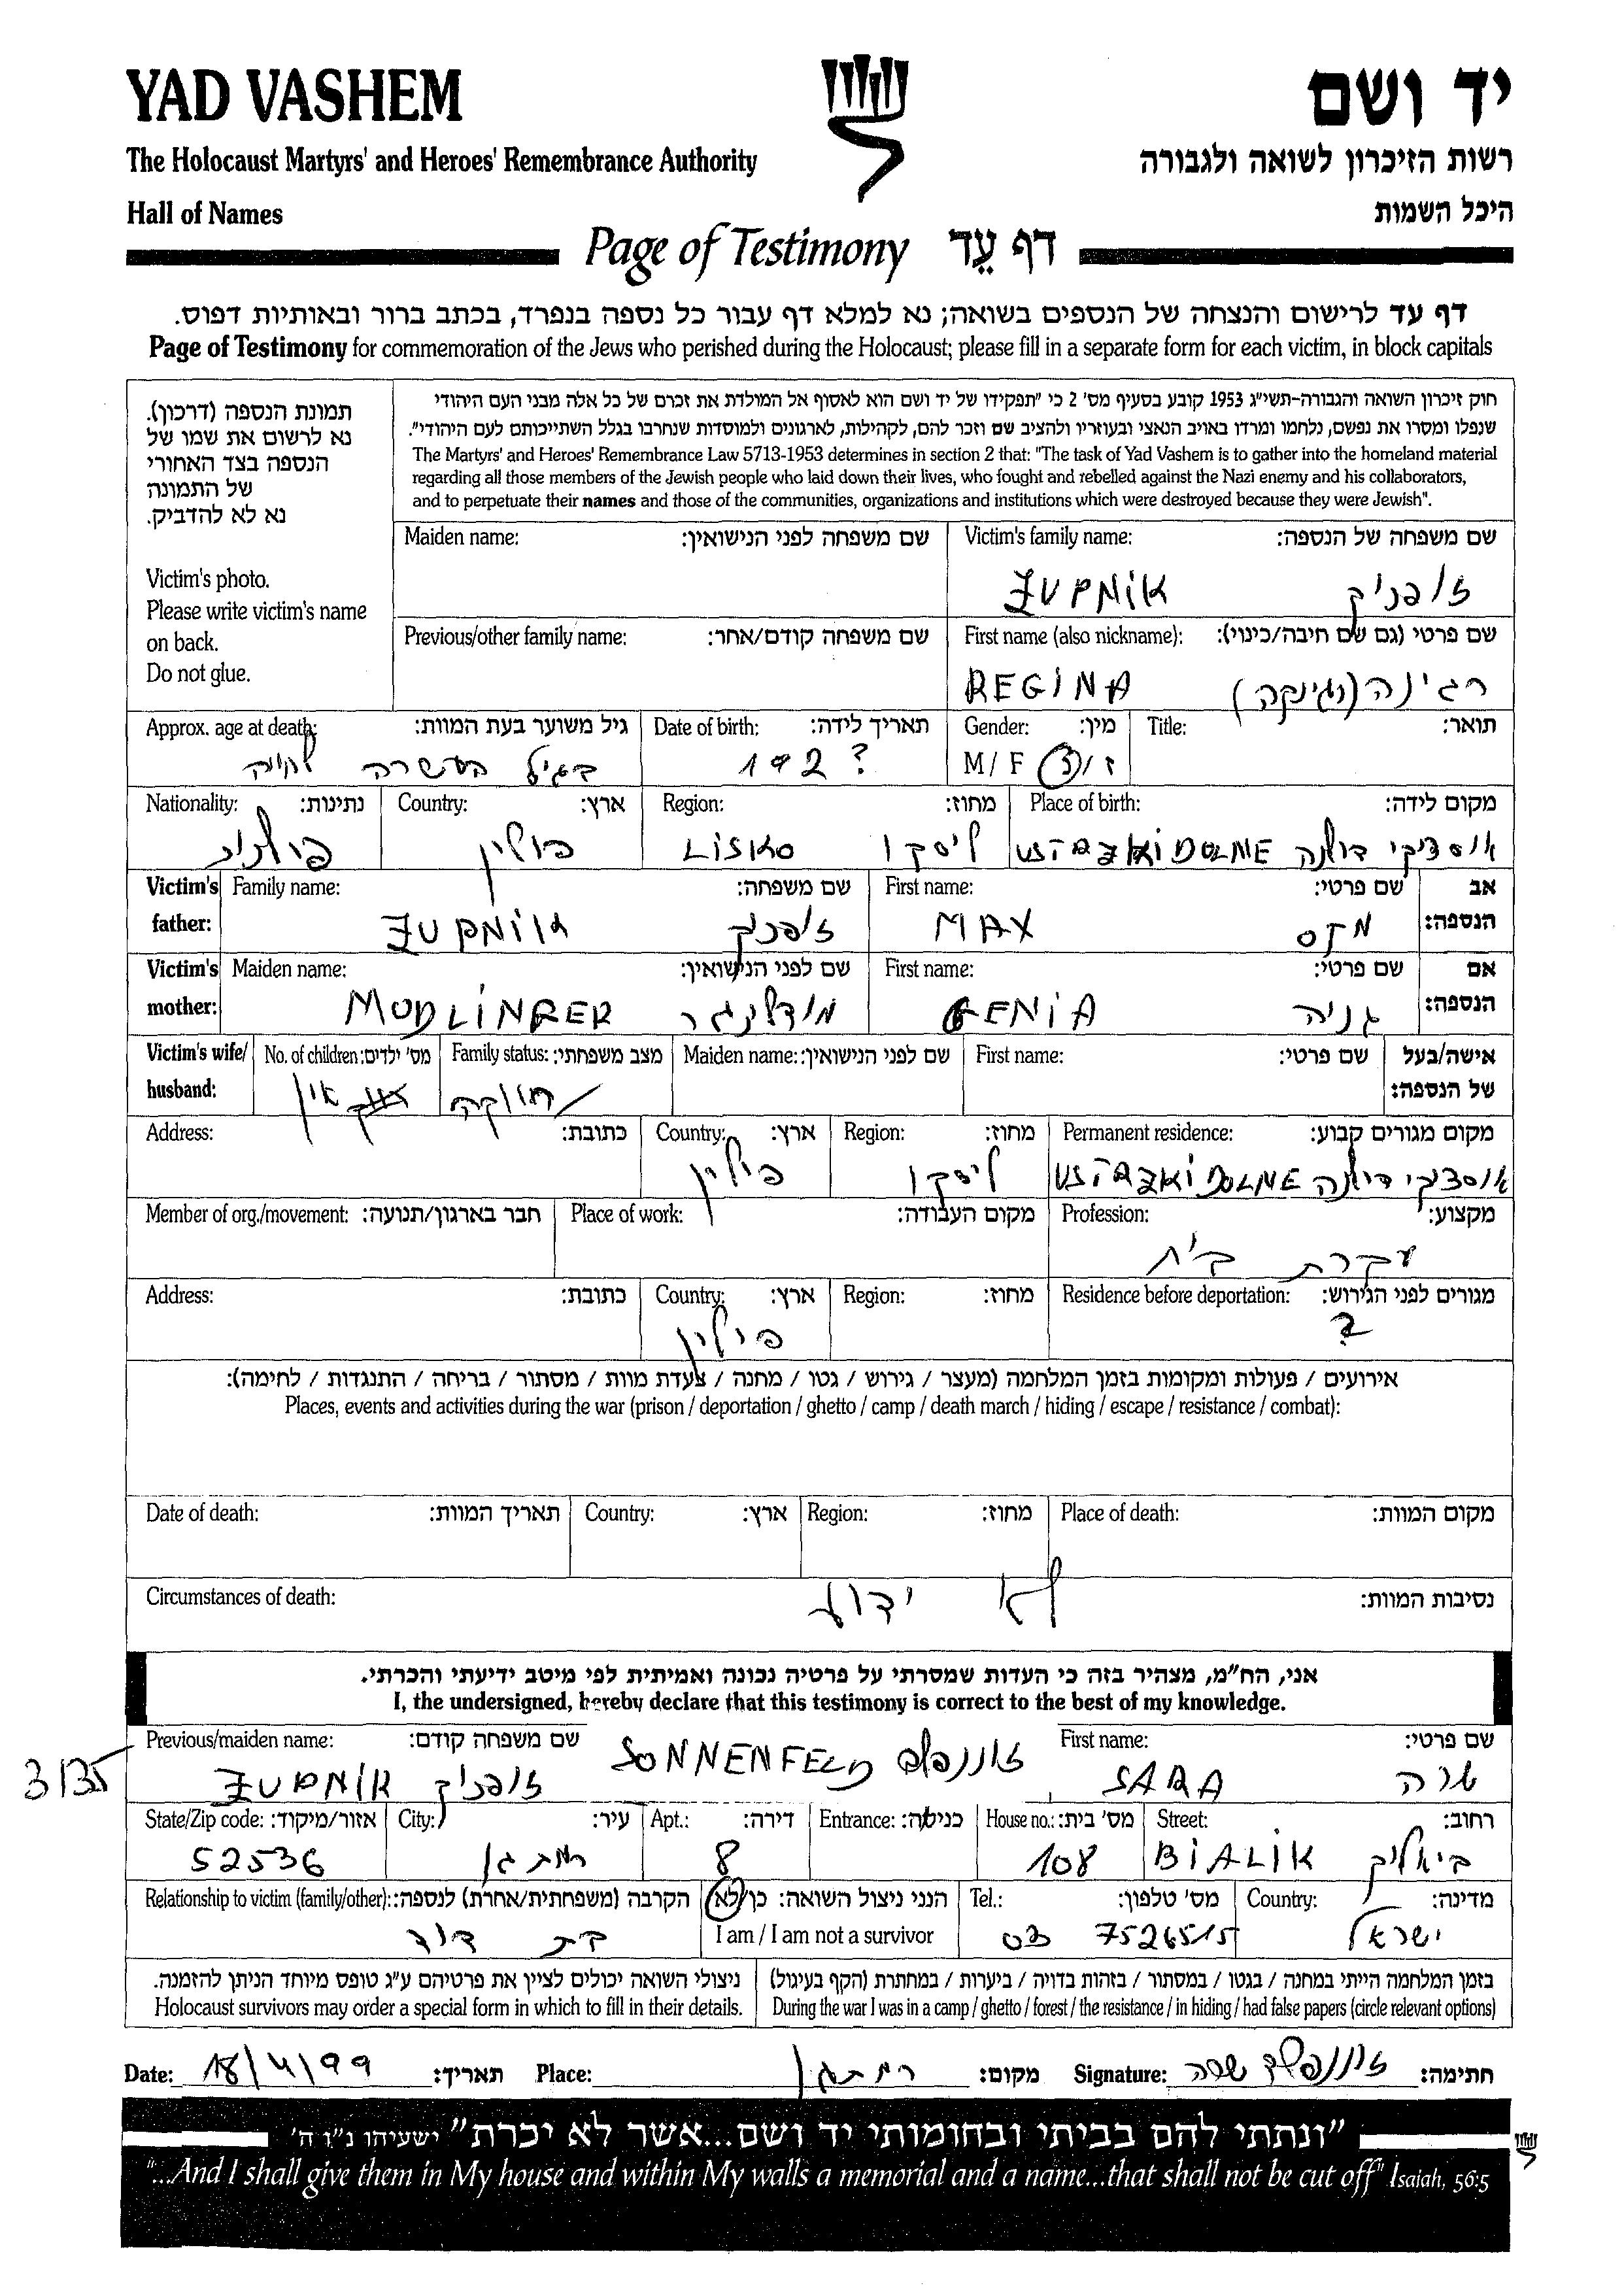 YAD VASHEM
יד ושם
The Holocaust Martyrs' and Heroes' Remembrance Authority
רשות הזיכרון לשואה ולגבורה
Hall of Names
היכל השמות
Page of Testimony דף עֵד
דף עד לרישום והנצחה של הנספים בשואה; נא למלא דף עבור כל נספה בנפרד, בכתב ברור ובאותיות דפוס.
Page of Testimony for commemoration of the Jews who perished during the Holocaust; please fill in a separate form for each victim, in block capitals
תמונת הנספה (דרכון).
נא לרשום את שמו של
הנספה בצד האחורי
של התמונה
נא לא להדביק.
Victim's photo.
Please write victim's name
on back.
Do not glue.
חוק זיכרון השואה והגבורה-תשי"ג 1953 קובע בסעיף מס' 2 כי "תפקידו של יד ושם הוא לאסוף אל המולדת את זכרם של כל אלה מבני העם היהודי
שנפלו ומסרו את נפשם, נלחמו ומרדו באויב הנאצי ובעוזריו ולהציב שם וזכר להם, לקהילות, לארגונים ולמוסדות שנחרבו בגלל השתייכותם לעם היהודי".
The Martyrs' and Heroes' Remembrance Law 5713-1953 determines in section 2 that: "The task of Yad Vashem is to gather into the homeland material
regarding all those members of the Jewish people who laid down their lives, who fought and rebelled against the Nazi enemy and his collaborators,
and to perpetuate their names and those of the communities, organizations and institutions which were destroyed because they were Jewish".
Maiden name: שם משפחה לפני הנישואין: Victim's family name: שם משפחה של הנספה:
ZUPNIK זופניק
Previous/other family name: שם משפחה קודם/אחר: First name (also nickname): שם פרטי (גם שם חיבה/כינוי):
REGINA רגינה (רגינקה)
Approx. age at death: גיל משוער בעת המוות: Date of birth: תאריך לידה: Gender: מין: Title: תואר:
בגיל העשרה 192? M / F ז / נ
Nationality: נתינות: Country: ארץ: Region: מחוז: Place of birth: מקום לידה:
פולניה פולין LISKO ליסקו USTRZKI DOLNE אוסטציקי דולנה
Victim's father: Family name: שם משפחה: First name: שם פרטי: אב הנספה:
ZUPNIK זופניק MAX מקס
Victim's mother: Maiden name: שם לפני הנישואין: First name: שם פרטי: אם הנספה:
MODLINGER מודלינגר GENIA גניה
Victim's wife/ husband: No. of children: מס' ילדים: Family status: מצב משפחתי: Maiden name: שם לפני הנישואין: First name: שם פרטי: אישה/בעל של הנספה:
אין רווקה
Address: כתובת: Country: ארץ: Region: מחוז: Permanent residence: מקום מגורים קבוע:
פולין ליסקו USTRZKI DOLNE אוסטציקי דולנה
Member of org./movement: חבר בארגון/תנועה: Place of work: מקום העבודה: Profession: מקצוע:
עקרת בית
Address: כתובת: Country: ארץ: Region: מחוז: Residence before deportation: מגורים לפני הגירוש:
פולין ?
אירועים / פעולות ומקומות בזמן המלחמה (מעצר / גירוש / גטו / מחנה / צעדת מוות / מסתור / בריחה / התנגדות / לחימה):
Places, events and activities during the war (prison / deportation / ghetto / camp / death march / hiding / escape / resistance / combat):
Date of death: תאריך המוות: Country: ארץ: Region: מחוז: Place of death: מקום המוות:
Circumstances of death: נסיבות המוות:
לא ידוע
אני, הח"מ, מצהיר בזה כי העדות שמסרתי על פרטיה נכונה ואמיתית לפי מיטב ידיעתי והכרתי.
I, the undersigned, hereby declare that this testimony is correct to the best of my knowledge.
Previous/maiden name: שם משפחה קודם: First name: שם פרטי:
3135 ZUPNIK זופניק SONNENFELD זוננפלד SARA שרה
State/Zip code: אזור/מיקוד: City: עיר: Apt.: דירה: Entrance: כניסה: House no.: מס' בית: Street: רחוב:
52536 רמת גן 8 108 BIALIK ביאליק
Relationship to victim (family/other): הקרבה (משפחתית/אחרת) לנספה: הנני ניצול השואה: כן/לא Tel.: מס' טלפון: Country: מדינה:
בת דוד I am / I am not a survivor 03 7526515 ישראל
ניצולי השואה יכולים לציין את פרטיהם ע"ג טופס מיוחד הניתן להזמנה.
Holocaust survivors may order a special form in which to fill in their details.
בזמן המלחמה הייתי במחנה / בגטו / במסתור / בזהות בדויה / ביערות / במחתרת (הקף בעיגול)
During the war I was in a camp / ghetto / forest / the resistance / in hiding / had false papers (circle relevant options)
Date: 18/4/99 תאריך: Place: רמת גן מקום: Signature: זוננפלד שרה חתימה:
"ונתתי להם בביתי ובחומותי יד ושם...אשר לא יכרת" ישעיהו נ"ו ה'
"...And I shall give them in My house and within My walls a memorial and a name...that shall not be cut off" Isaiah, 56:5